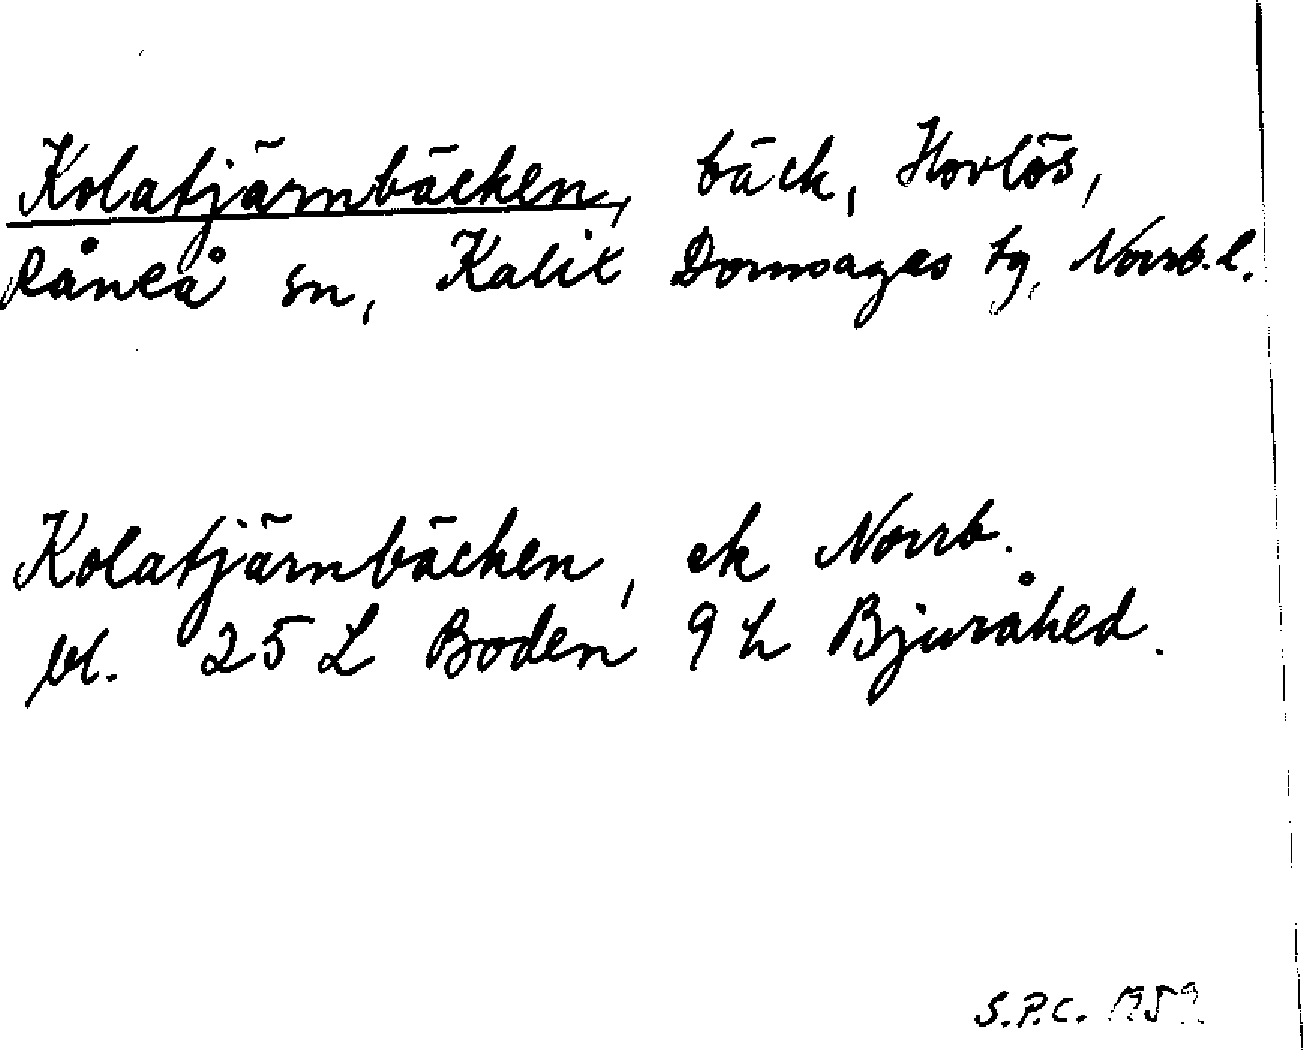 Kolatjärnbäcken, bäck, Hovlös,
Råneå sn, Kalix Domsagas tg, Norrb. l.
Kolatjärnbäcken, ek Norrb.
bl. 25 L Boden 9 h Bjuråhed.
S.P.C. 1959.